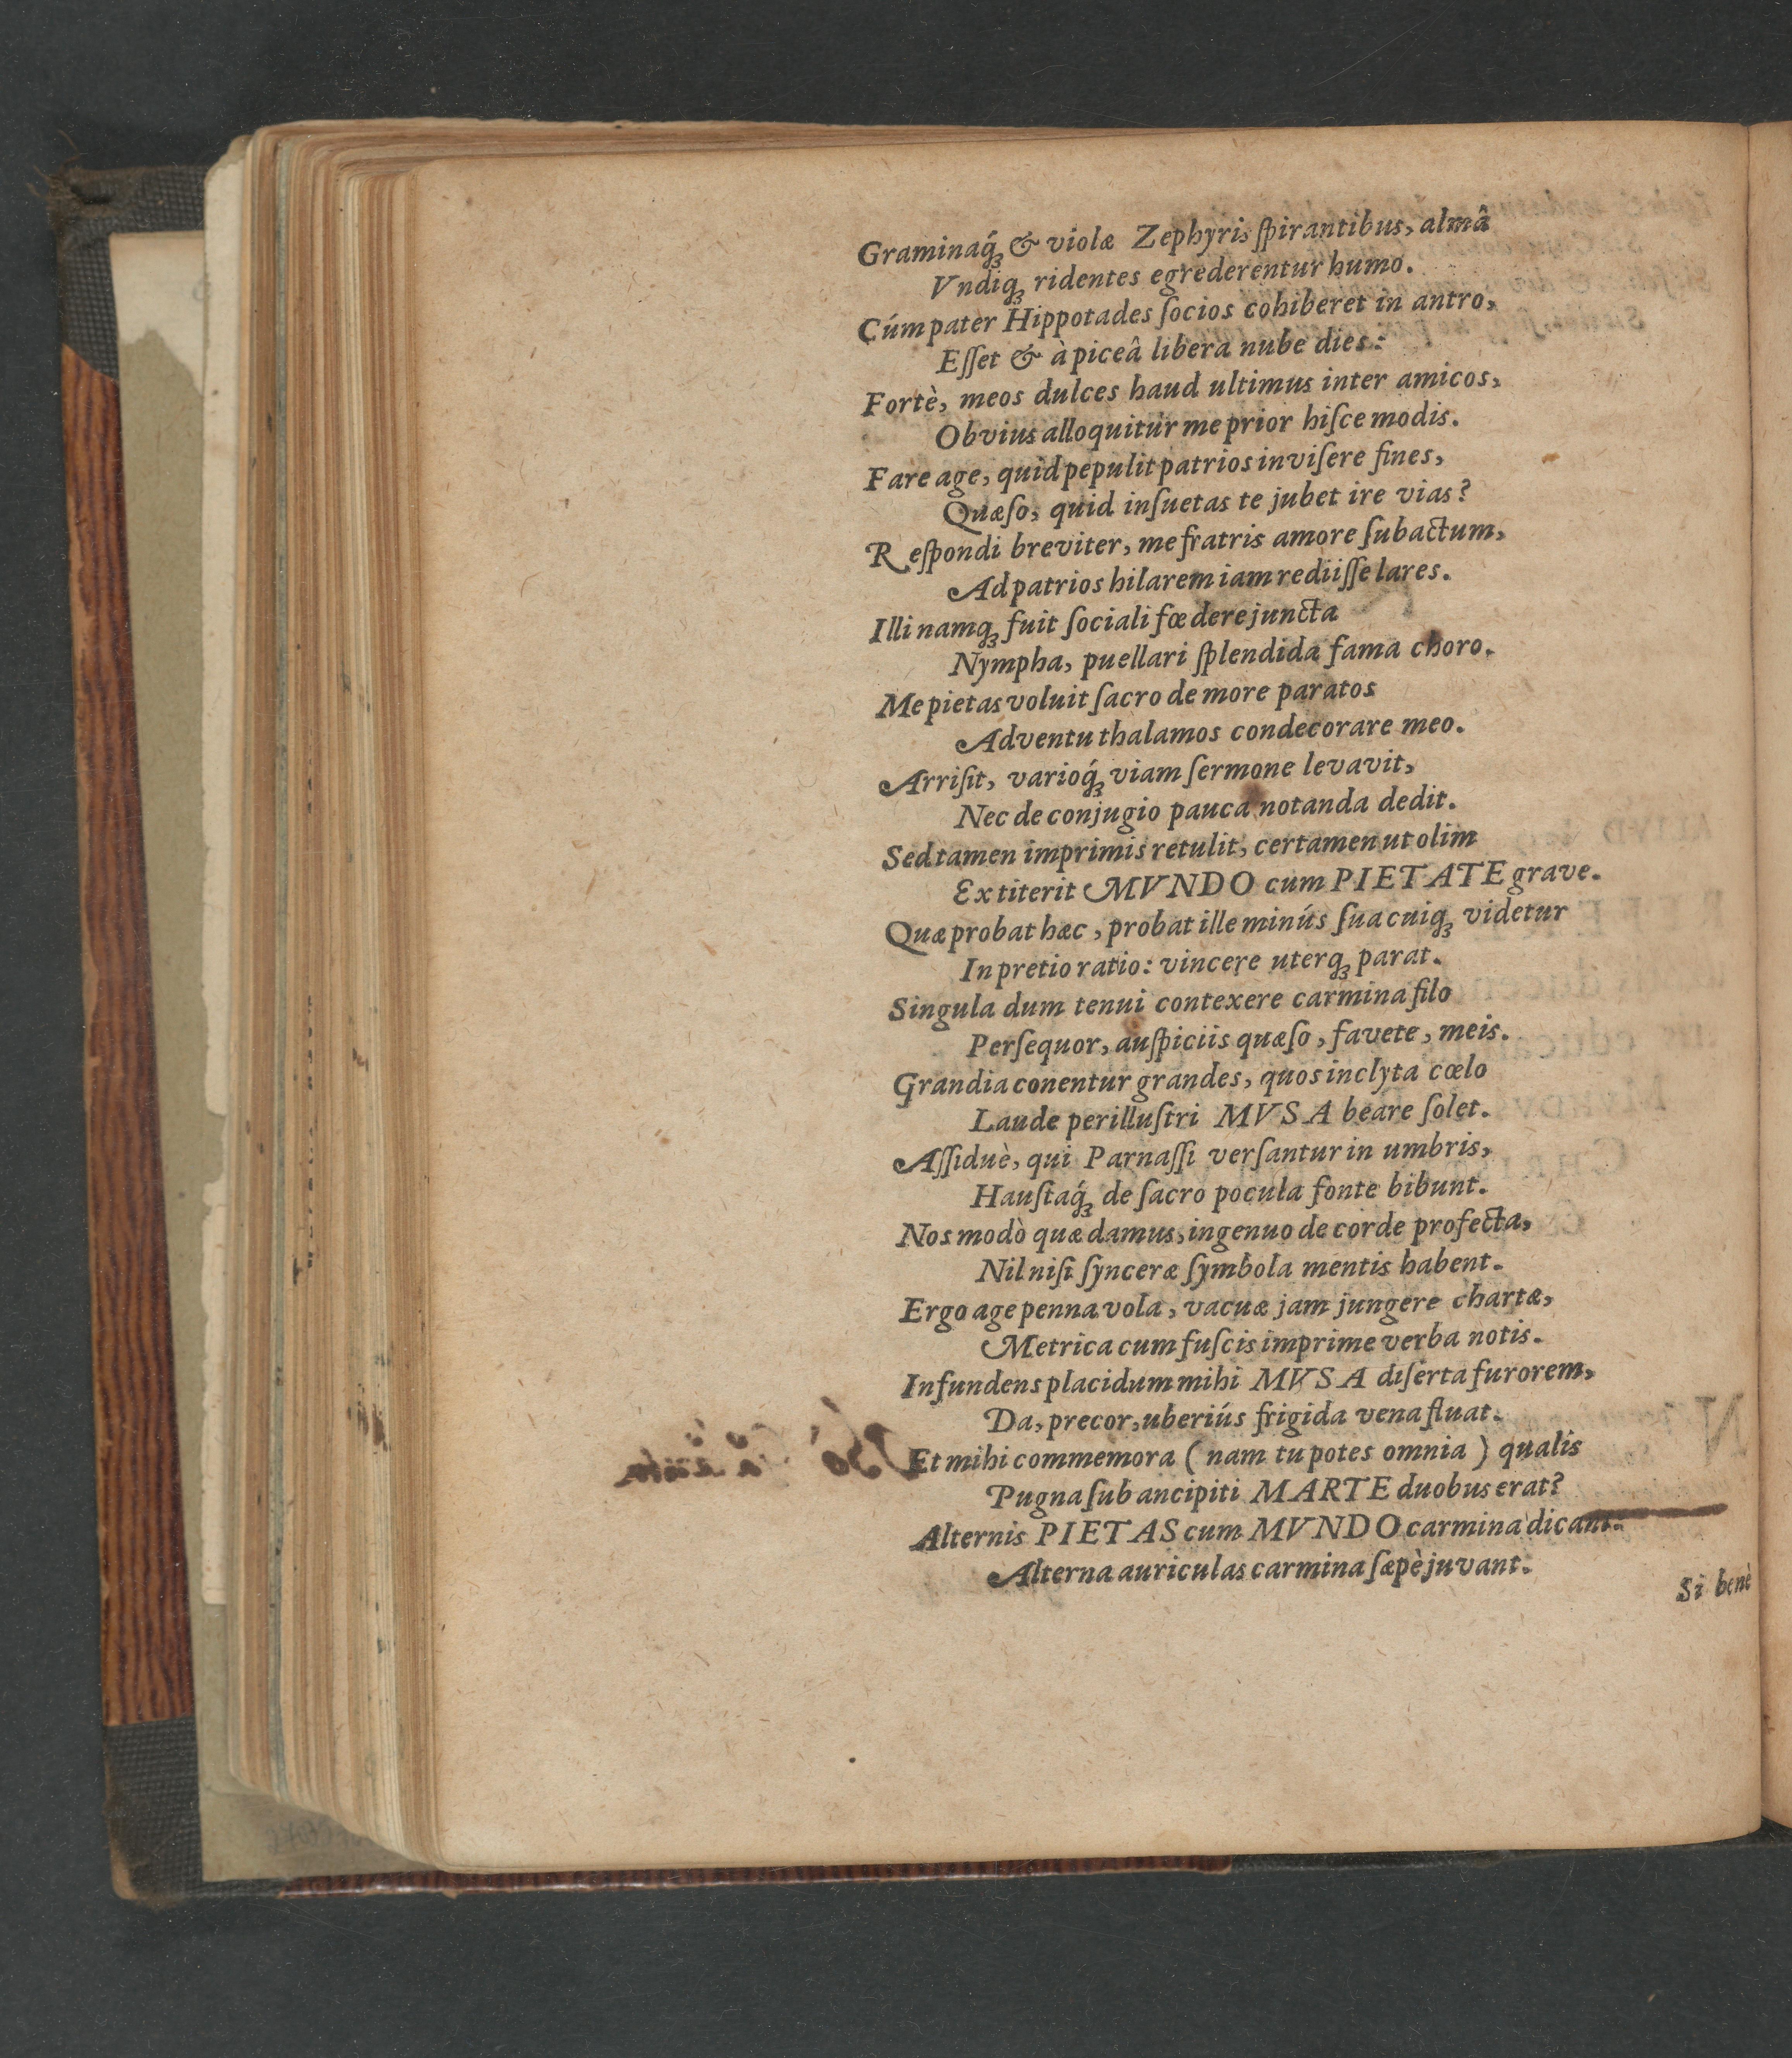 Graminaq́ꝫ & violæ Zephyris ſpirantibus, almâ
Vndiqꝫ ridentes egrederentur humo.
Cúm pater Hippotades ſocios cohiberet in antro,
Eſſet & à piceâ libera nube dies:
Fortè, meos dulces haud ultimus inter amicos,
Obvius alloquitur me prior hiſce modis.
Fare age, quid pepulit patrios inviſere fines,
Quæſo, quid inſuetas te jubet ire vias?
Reſpondi breviter, me fratris amore ſubactum,
Ad patrios hilarem iam rediiſſe lares.
Illi namqꝫ fuit ſociali fœdere juncta
Nympha, puellari ſplendida fama choro.
Me pietas voluit ſacro de more paratos
Adventu thalamos condecorare meo.
Arriſit, varioq́ꝫ viam ſermone levavit,
Nec de conjugio pauca notanda dedit.
Sed tamen imprimis retulit, certamen ut olim
Extiterit MVNDO cum PIETATE grave.
Quæ probat hæc, probat ille minús ſua cuiqꝫ videtur
In pretio ratio: vincere uterqꝫ parat.
Singula dum tenui contexere carmina filo
Perſequor, auſpiciis quæſo, favete, meis.
Grandia conentur grandes, quos inclyta cœlo
Laude perilluſtri MVSA beare ſolet.
Aſſiduè, qui Parnaſſi verſantur in umbris,
Hauſtaq́ꝫ de ſacro pocula fonte bibunt.
Nos modò quæ damus, ingenuo de corde profecta,
Nil niſi ſynceræ ſymbola mentis habent.
Ergo age penna vola, vacuæ jam jungere chartæ,
Metrica cum fuſcis imprime verba notis.
Infundens placidum mihi MVSA diſerta furorem,
Da, precor, uberiús frigida vena fluat.
Et mihi commemora ( nam tu potes omnia ) qualis
Pugna ſub ancipiti MARTE duobus erat?
Alternis PIETAS cum MVNDO carmina dicant:
Alterna auriculas carmina ſæpè juvant.
Si benè